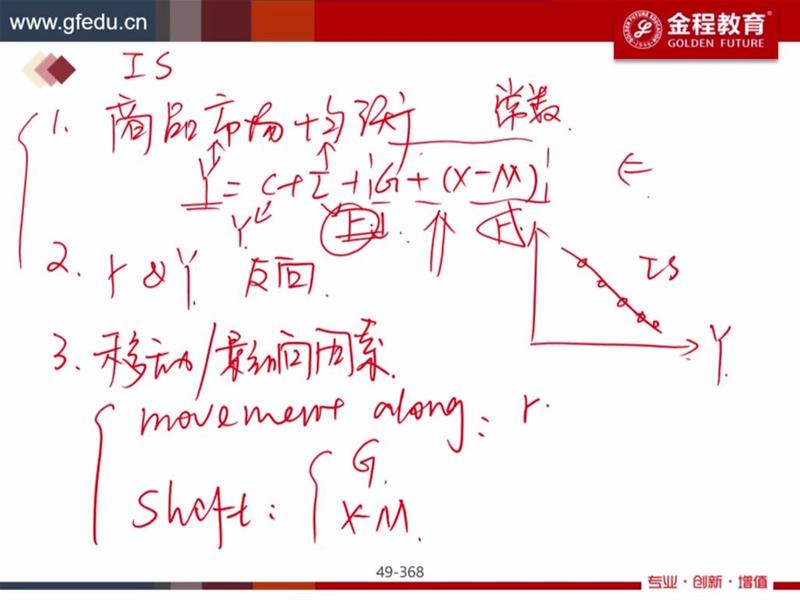 www.gfedu.cn
金程教育
GOLDEN FUTURE
IS
1. 商品市场均衡
常数
Y = C + I + G + (X-M)
Y
2. r & Y 反向
IS
Y
3. 移动/影响因素
movement along: r.
Shift: G.
X-M.
49-368
专业·创新·增值